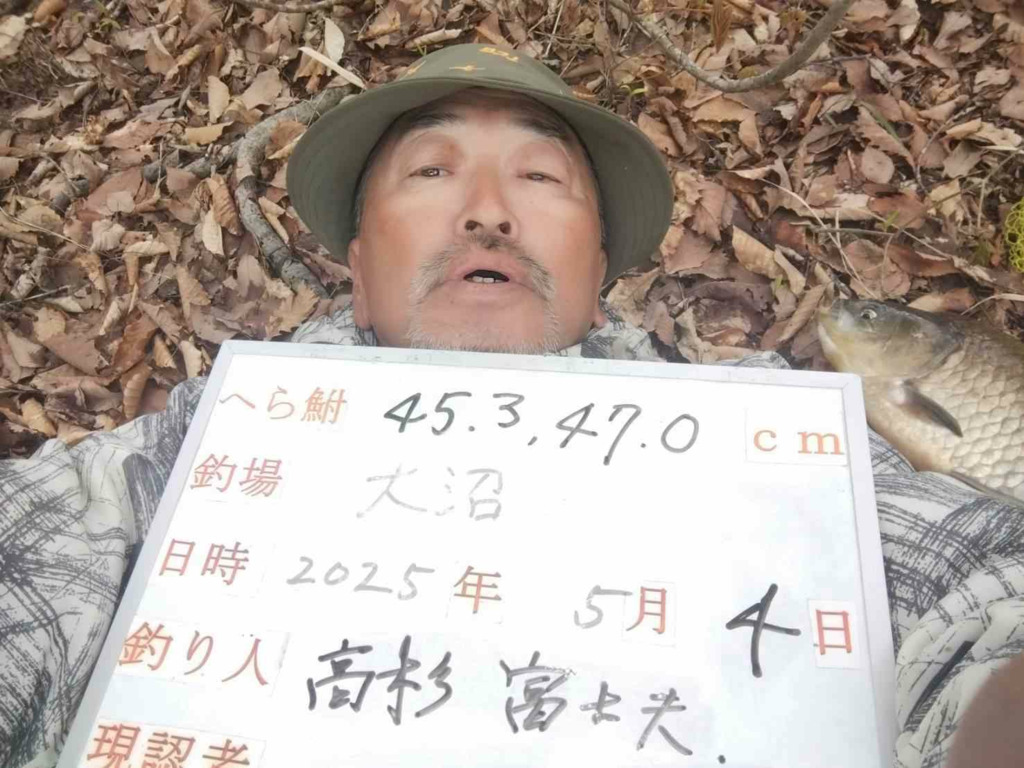 へら鮒 45.3,47.0 cm
釣場 大沼
日時 2025年 5月 4日
釣り人 高杉 富士夫.
現認者